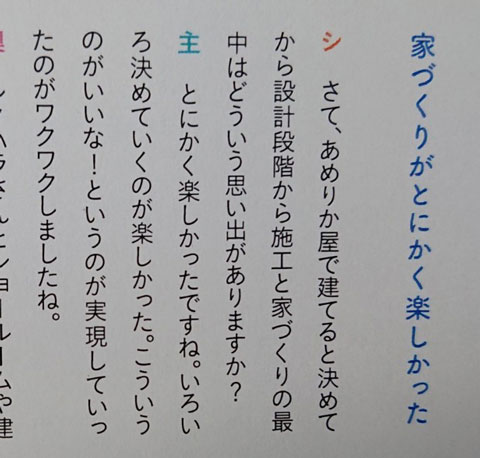 家づくりがとにかく楽しかった
シ さて、あめりか屋で建てると決めて
から設計段階から施工と家づくりの最
中はどういう思い出がありますか?
主 とにかく楽しかったですね。いろい
ろ決めていくのが楽しかった。こういう
のがいいな!というのが実現していっ
たのがワクワクしましたね。